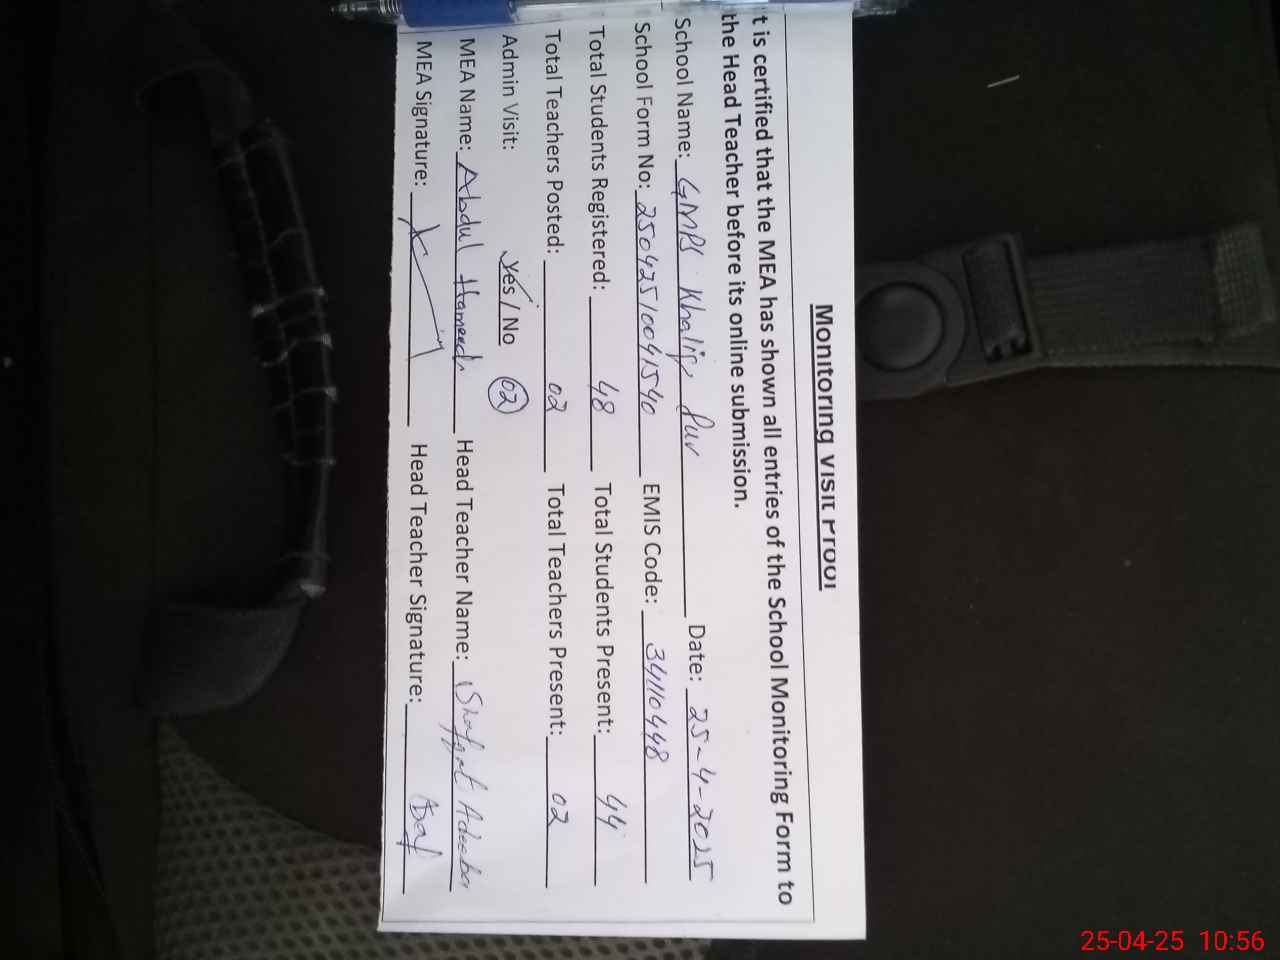 Monitoring Visit Proof
t is certified that the MEA has shown all entries of the School Monitoring Form to
the Head Teacher before its online submission.
School Name: GMPS Khalig Pur Date: 25-4-2025
School Form No: 25042510041540 EMIS Code: 34110448
Total Students Registered: 48 Total Students Present: 44
Total Teachers Posted: 02 Total Teachers Present: 02
Admin Visit: Yes / No 02
MEA Name: Abdul Hameed Head Teacher Name: Shafqat Adeeba
MEA Signature: Head Teacher Signature:
25-04-25 10:56